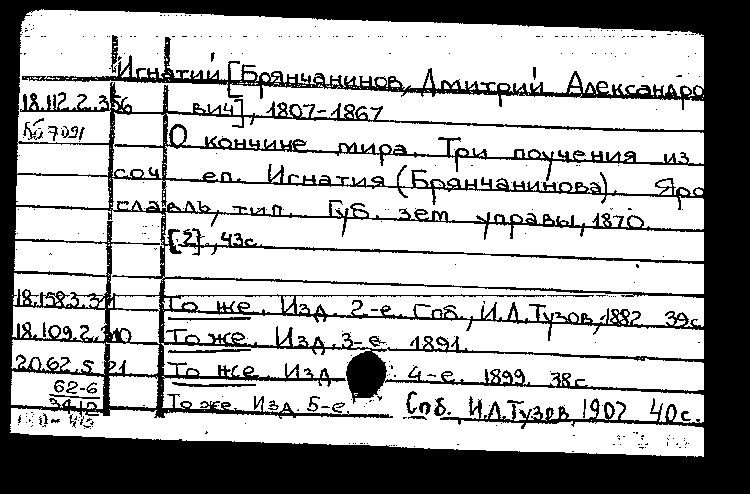 Игнатий [Брянчанинов, Дмитрий Александро
18.112.2.356 вич], 1807-1867
О кончине мира. Три поучения из
соч еп. Игнатия (Брянчанинова). Яро
славль, тип. Губ. зем. управы, 1870.
[2], 43с.
18.158.3.311 То же. Изд. 2-е. Спб., И.Л.Тузов, 1882 39с
18.109.2.310 То же. Изд. 3-е 1891.
20.62.5.21 То же. Изд. 4-е. 1899. 38с.
62-6
То же. Изд. 5-е. Спб., И.Л.Тузов, 1907 40с.